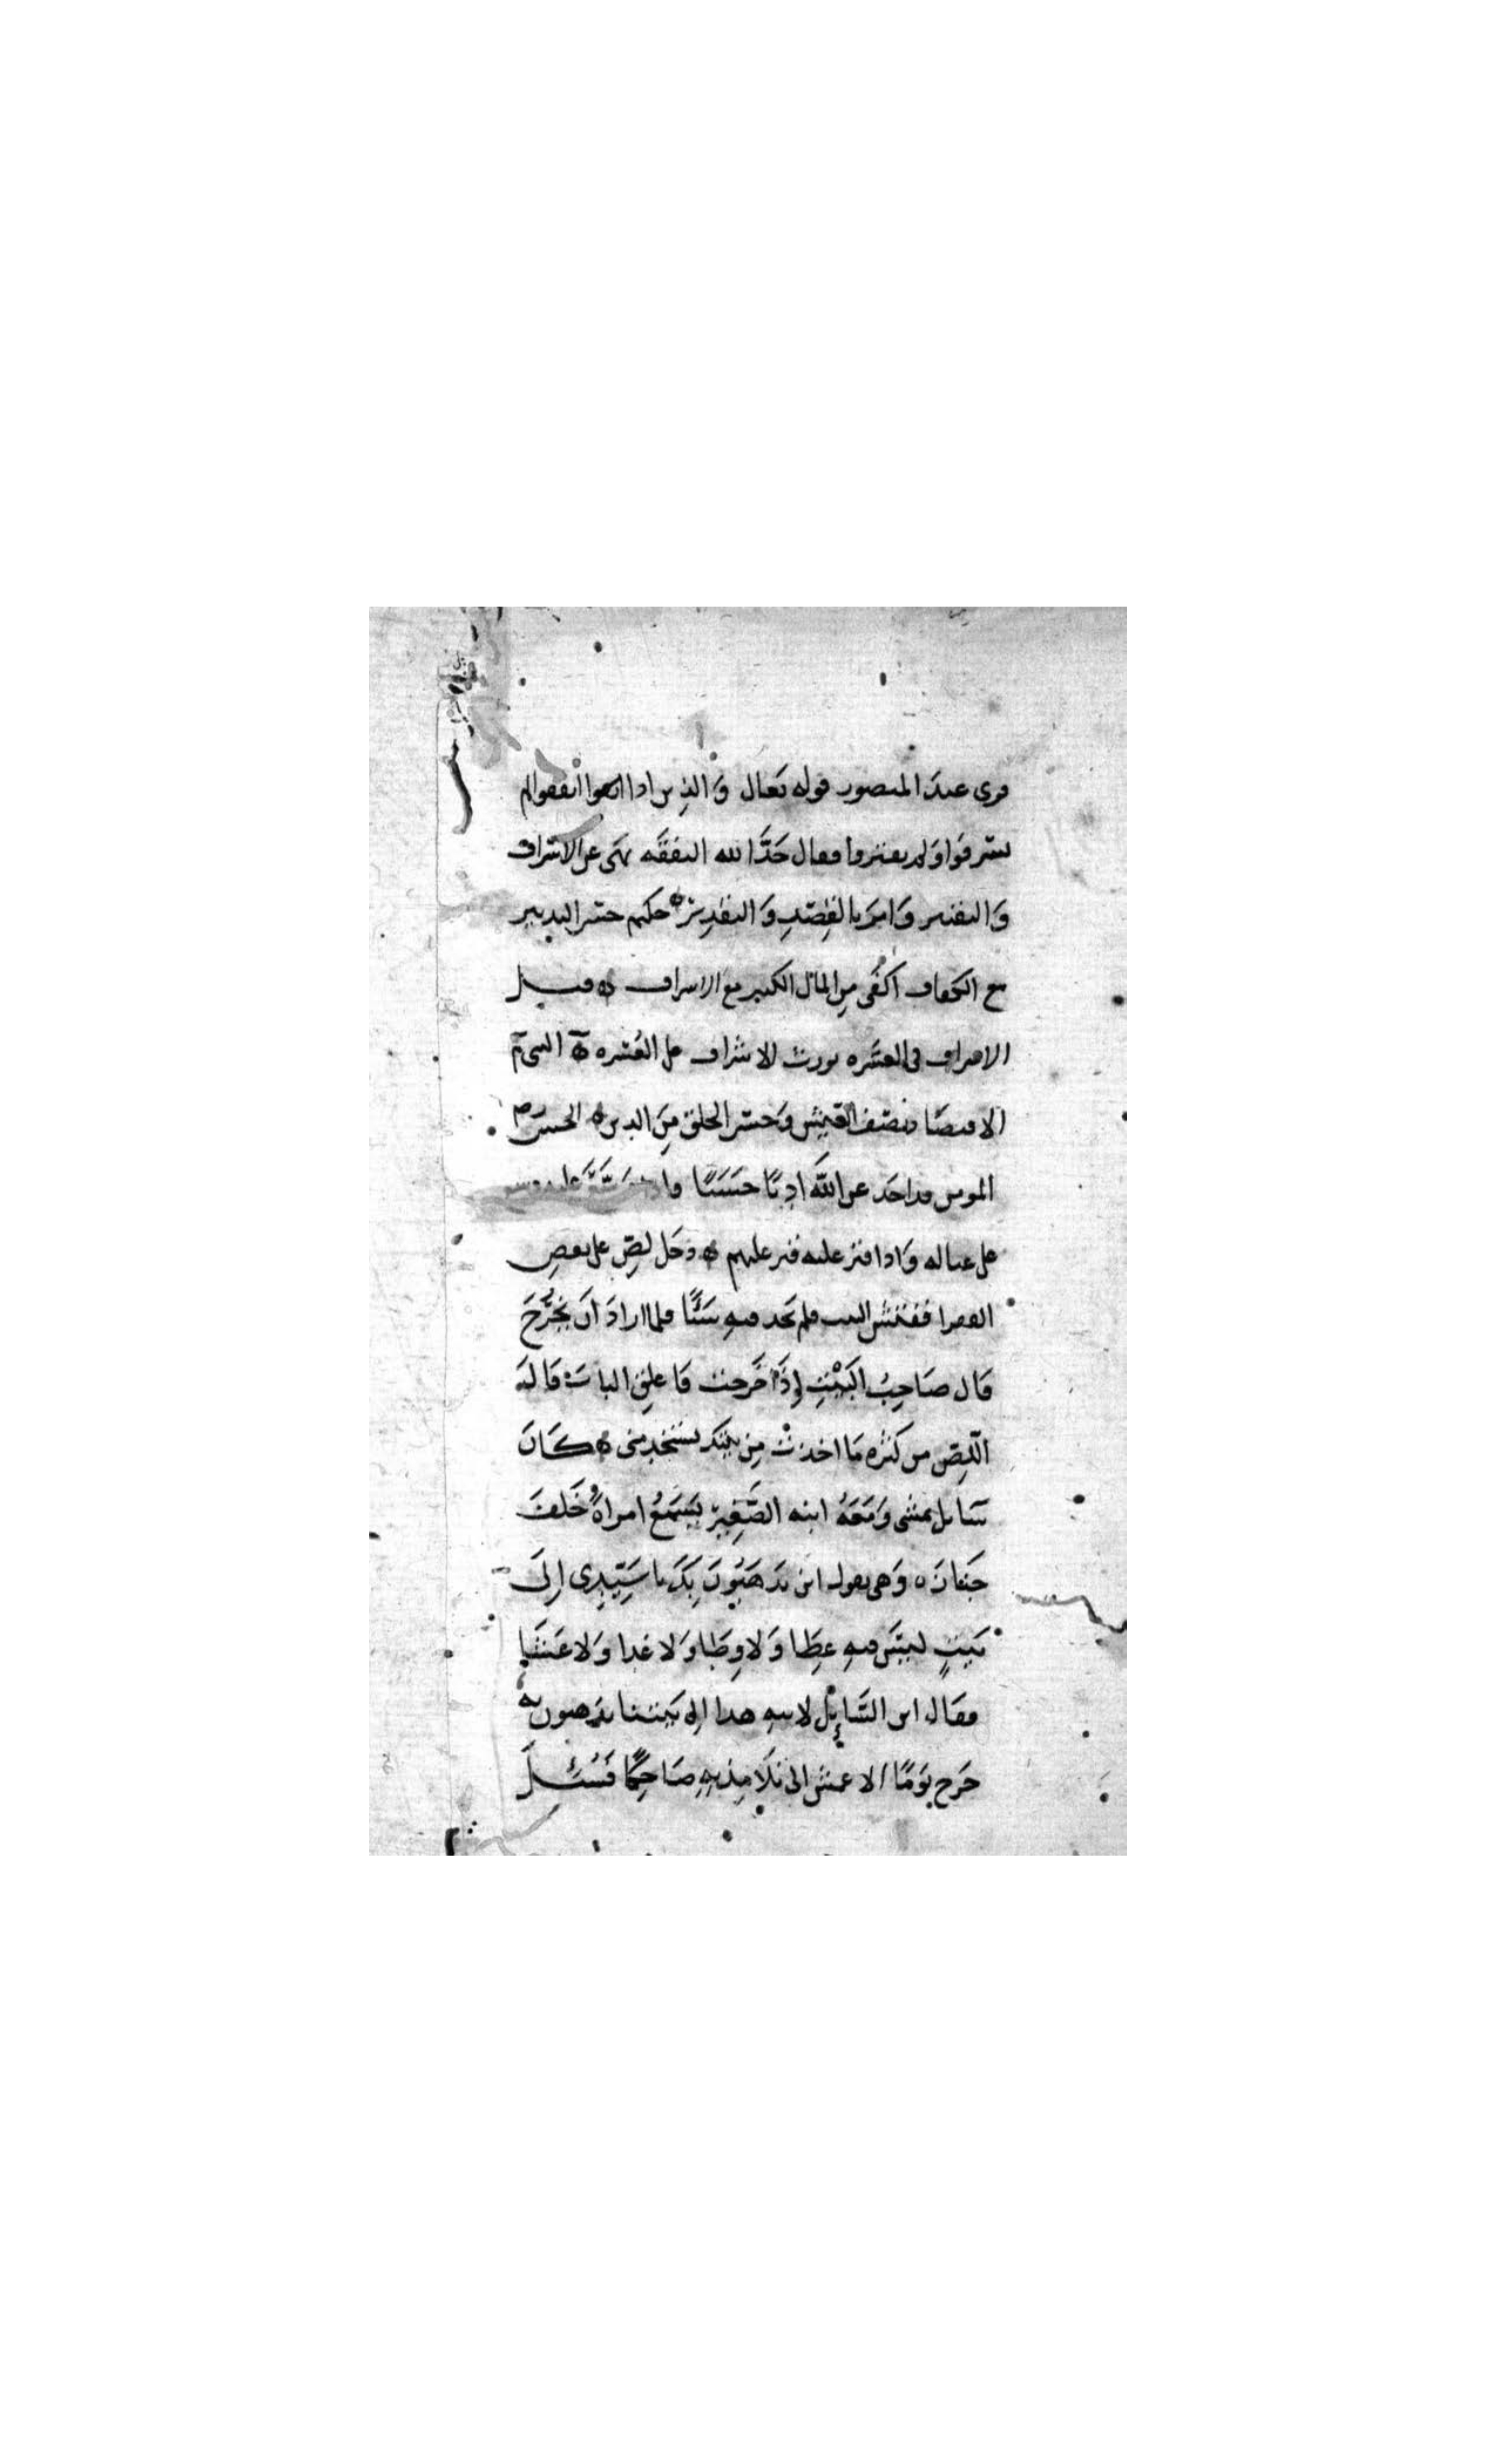 قرى عند المنصور قوله تعالى وَالذين اذا انفقوا لم
يسرفوا وَلم يقتروا فقال حَدَّ الله النفقَه نهى عن الاسراف
وَالتقتير وَامرَ بالقصدِ وَالتقدير ه حكيم حسن التدبير
مع الكفاف اكفى من المال الكثير مع الاسراف ه قيل
الاسراف فى العشره يورث الاشراف على العُسره ه النبى م
الاقتصاد نصف العَيش وَحسن الخلق مِنَ الدين ه الحسن رح
المومن قد اخذ عن الله ادبًا حسَنًا
على عياله وَاذا قتر عليه قتر عليهم ه دخل لصّ على بعض
الفقرا ففتش البيت فلم يجد فيهِ شيئًا فلما ارادَ ان يخرُجَ
قال صَاحِبُ البَيْتِ اِذَا خرجت فاغلق الباب ه قال له
اللِّص من كثره مَا اخذت مِن بيتك تستخدمنى ه كَانَ
سَايل يمشى وَمَعَهُ ابنه الصَّغِير يَسَمَعُ امراهً خَلفَ
جَنازه وَهى يقول اين يَذهَبُونَ بِكَ يا سَيّدِى اِلَى
بَيتٍ ليسَ فيهِ غِطا وَلا وِطا وَلا غدا وَلا عَشا
فقال ابن السَّايِل لابيهِ هذا الى بَيتنا يَذهبون به
خرج يَومًا الاعمش الى تلامِيذِهِ ضَاحِكًا فَسُئِلَ